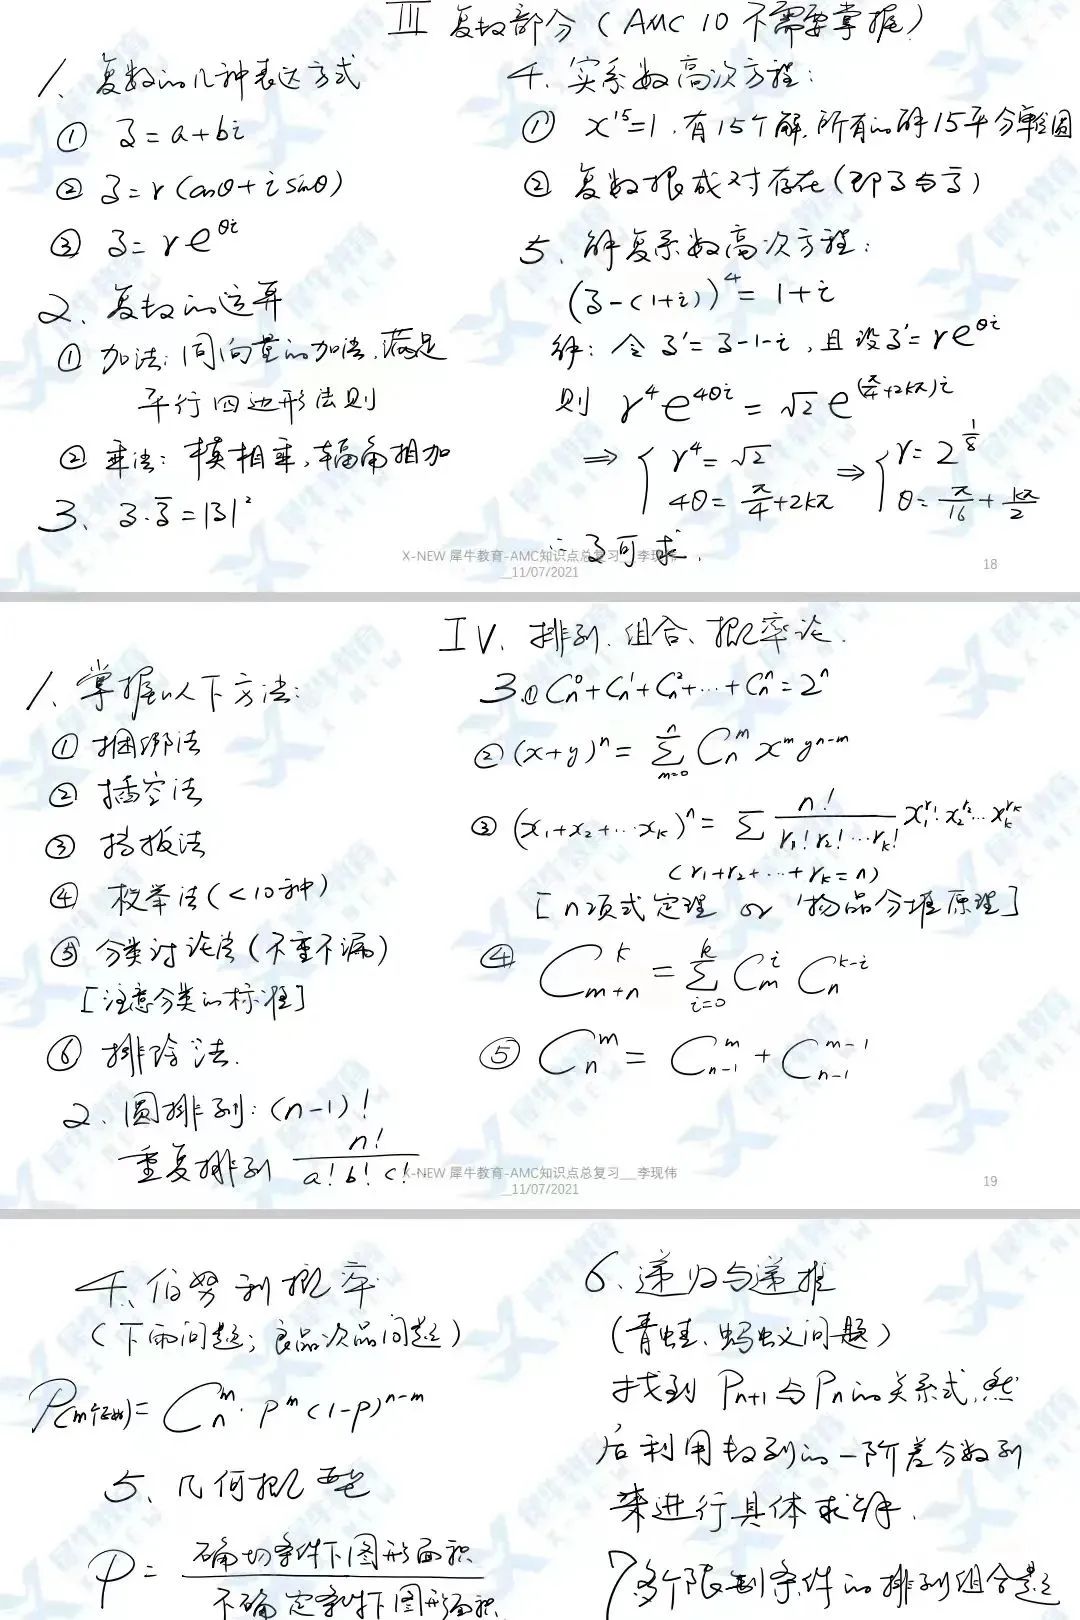 III 复数部分（AMC 10 不需要掌握）
1、复数的几种表达方式
① z=a+bi
② z=r(cosθ+i sinθ)
③ z=re^{θi}
2、复数的运算
① 加法：同向量的加法，满足
平行四边形法则
② 乘法：模相乘，辐角相加
3、z·z̄=|z|²
4、实系数高次方程：
① x^{15}=1，有15个解，所有的解15平分单位圆
② 复数根成对存在（即z与z̄）
5、解复系数高次方程：
(z-(1+i))^4=1+i
解：令 z'=z-1-i，且设z'=re^{θi}
则 r^4 e^{4θi}=√2 e^{(π/4+2kπ)i}
⇒ { r^4=√2 ⇒ { r=2^{1/8}
4θ=π/4+2kπ θ=π/16+kπ/2
∴ z可求.
X-NEW 犀牛教育-AMC知识点总复习__李现伟
__11/07/2021
18
IV、排列、组合、概率论.
1、掌握以下方法：
① 捆绑法
② 插空法
③ 挡板法
④ 枚举法（<10种）
⑤ 分类讨论法（不重不漏）
[注意分类的标准]
⑥ 排除法.
2、圆排列：(n-1)!
重复排列 n!/(a! b! c!)
3.① C_n^0+C_n^1+C_n^2+…+C_n^n=2^n
② (x+y)^n=∑_{m=0}^{n} C_n^m x^m y^{n-m}
③ (x_1+x_2+…x_k)^n=∑ n!/(r_1! r_2! … r_k!) x_1^{r_1}·x_2^{r_2}…x_k^{r_k}
(r_1+r_2+…+r_k=n)
[n项式定理 or 物品分堆原理]
④ C_{m+n}^k=∑_{i=0}^{k} C_m^i C_n^{k-i}
⑤ C_n^m=C_{n-1}^m+C_{n-1}^{m-1}
X-NEW 犀牛教育-AMC知识点总复习__李现伟
__11/07/2021
19
4、伯努利概率
（下雨问题；良品次品问题）
P= C_n^m·p^m(1-p)^{n-m}
5、几何概型
P= 确切条件下图形面积/不确定条件下图形面积
6、递归与递推
（青蛙、蚂蚁问题）
找到 P_{n+1}与P_n的关系式，然
后利用数列的一阶差分数列
来进行具体求解.
7多个限制条件的排列组合题